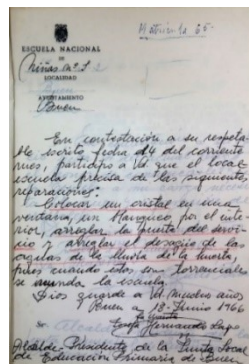 Matrícula 65
ESCUELA NACIONAL
DE
Niñas nº 2
LOCALIDAD
AYUNTAMIENTO
Bueu
En contestación a su respeta-
ble escrito fecha d 4 del corriente
mes, participo a Vd. que el local
escuela precisa de las siguientes
reparaciones:
Colocar un cristal en una
ventana, un blanqueo por el inte-
rior, arreglar la puerta del servi-
cio y arreglar el desagüe de las
aguas de la lluvia de la huerta,
pues cuando estas son torrenciales
se inunda la escuela.
Dios guarde a Vd. muchos años
Bueu a Junio 1966
La Maestra
Hernández Lago
Sr.
Alcalde-Presidente de la Junta Local
de Educación Primaria de Bueu